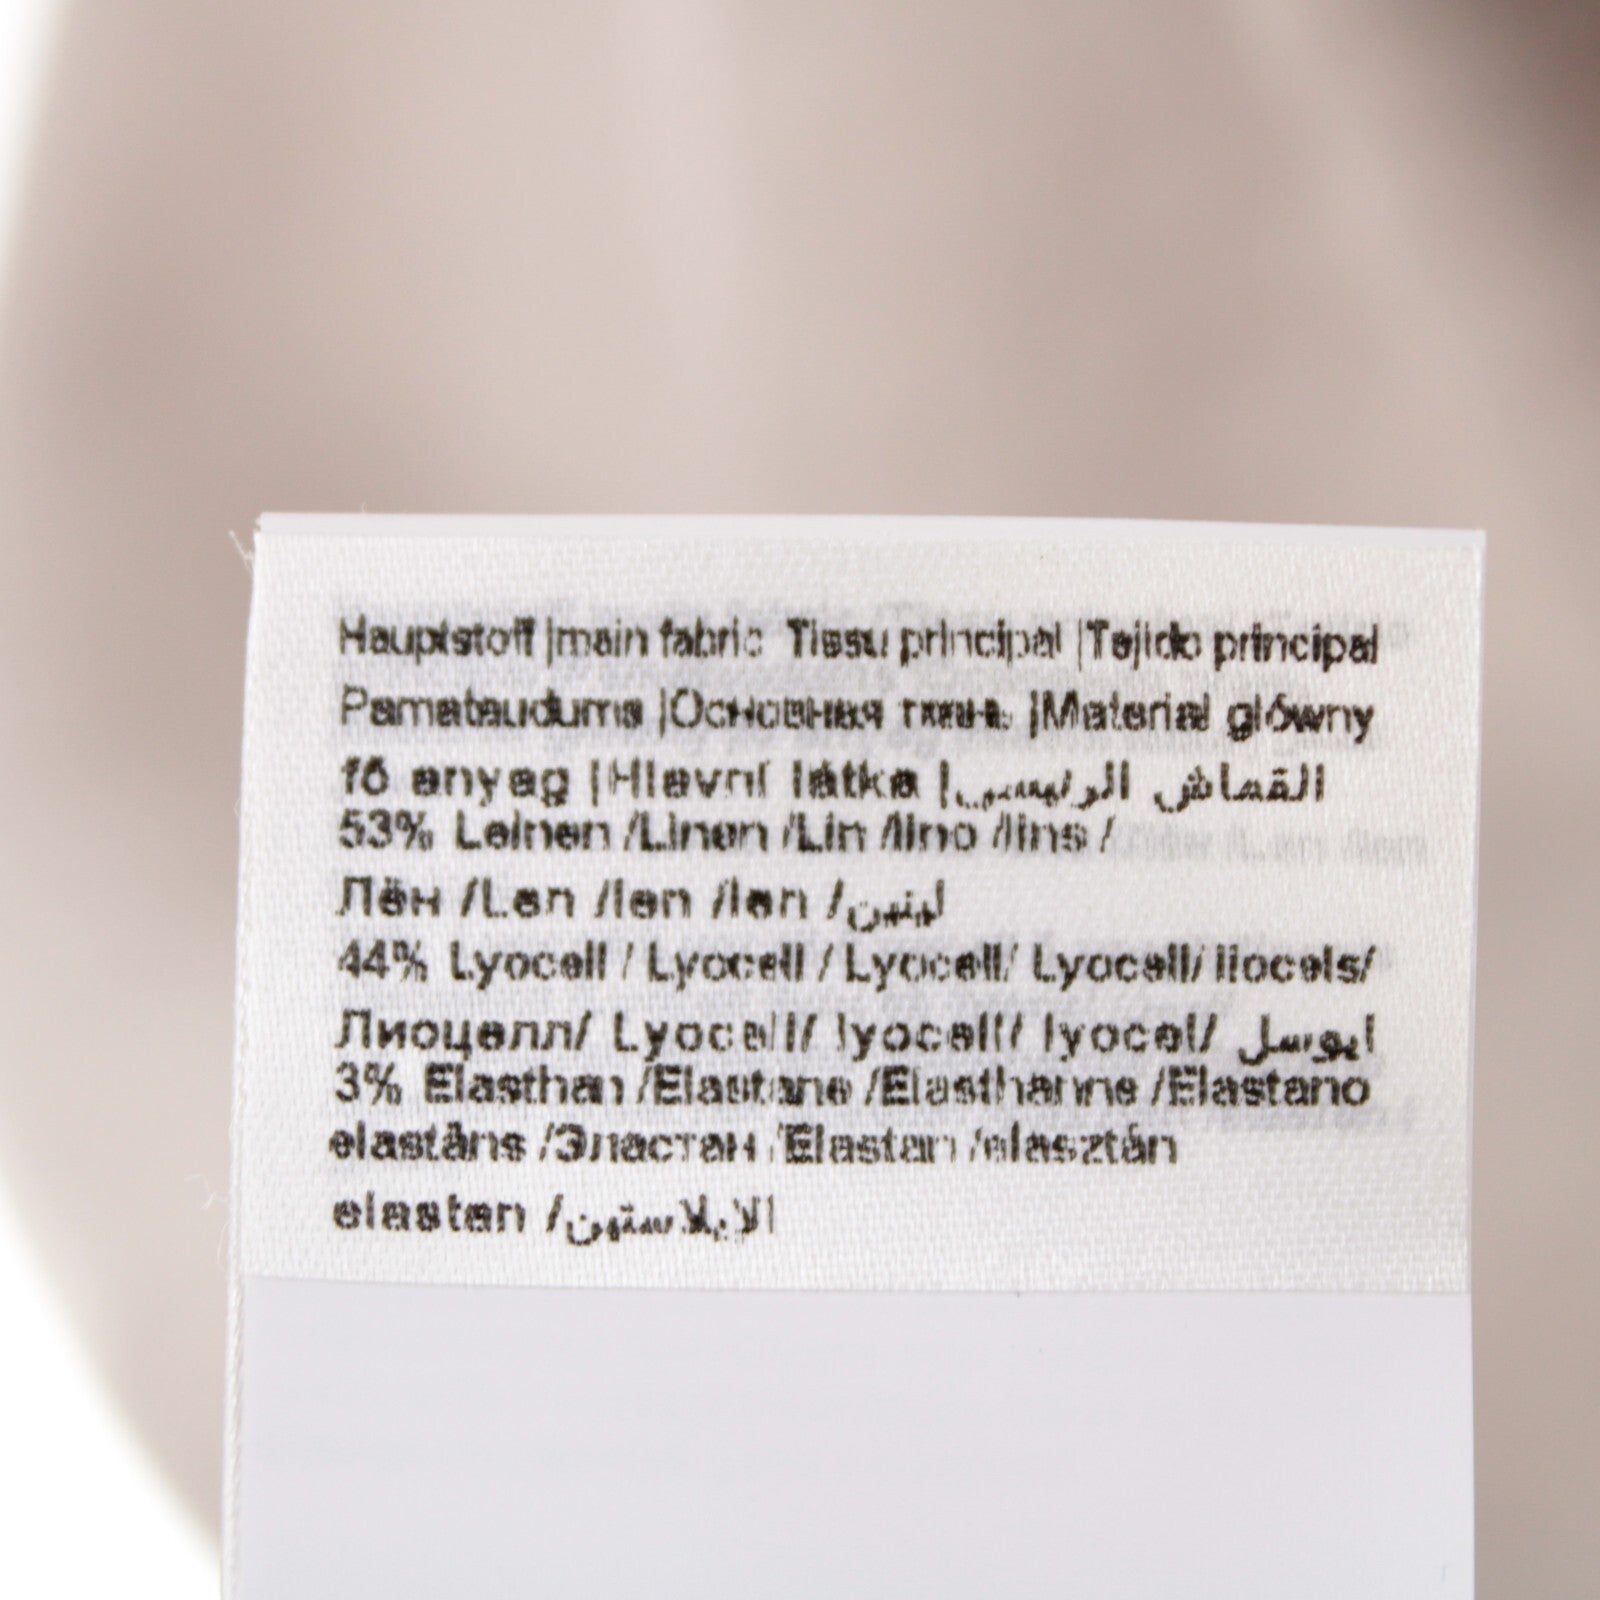 Hauptstoff |main fabric Tissu principal |Tejido principal
Pamataudums |Основная ткань |Materiał główny
fő anyag |Hlavní látka |القماش الرئيسي
53% Leinen /Linen /Lin /lino /lins /
Лён /Len /len /len /لينين
44% Lyocell / Lyocell / Lyocell/ Lyocell/ liocels/
Лиоцелл/ Lyocell/ lyocell/ lyocel/ ليوسل
3% Elasthan /Elastane /Elasthanne /Elastano
elastāns /Эластан /Elastan /elasztán
elastan /الإيلاستين